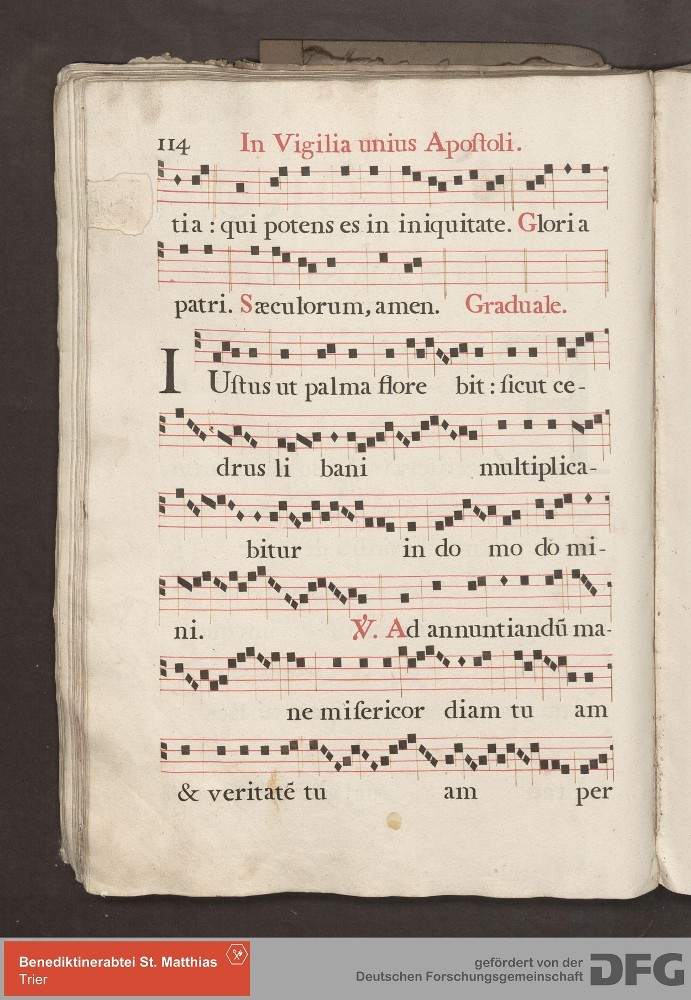 114 In Vigilia unius Apoſtoli.
tia : qui potens es in iniquitate. Gloria
patri. Sæculorum, amen. Graduale.
IUſtus ut palma flore bit : ſicut ce-
drus li bani multiplica-
bitur in do mo do mi-
ni. ℣. Ad annuntiandū ma-
ne miſericor diam tu am
& veritatē tu am per
Benediktinerabtei St. Matthias
Trier
gefördert von der
Deutschen Forschungsgemeinschaft DFG